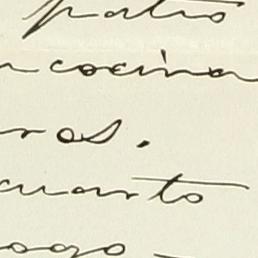 patio
cocina
ros.
cuarto